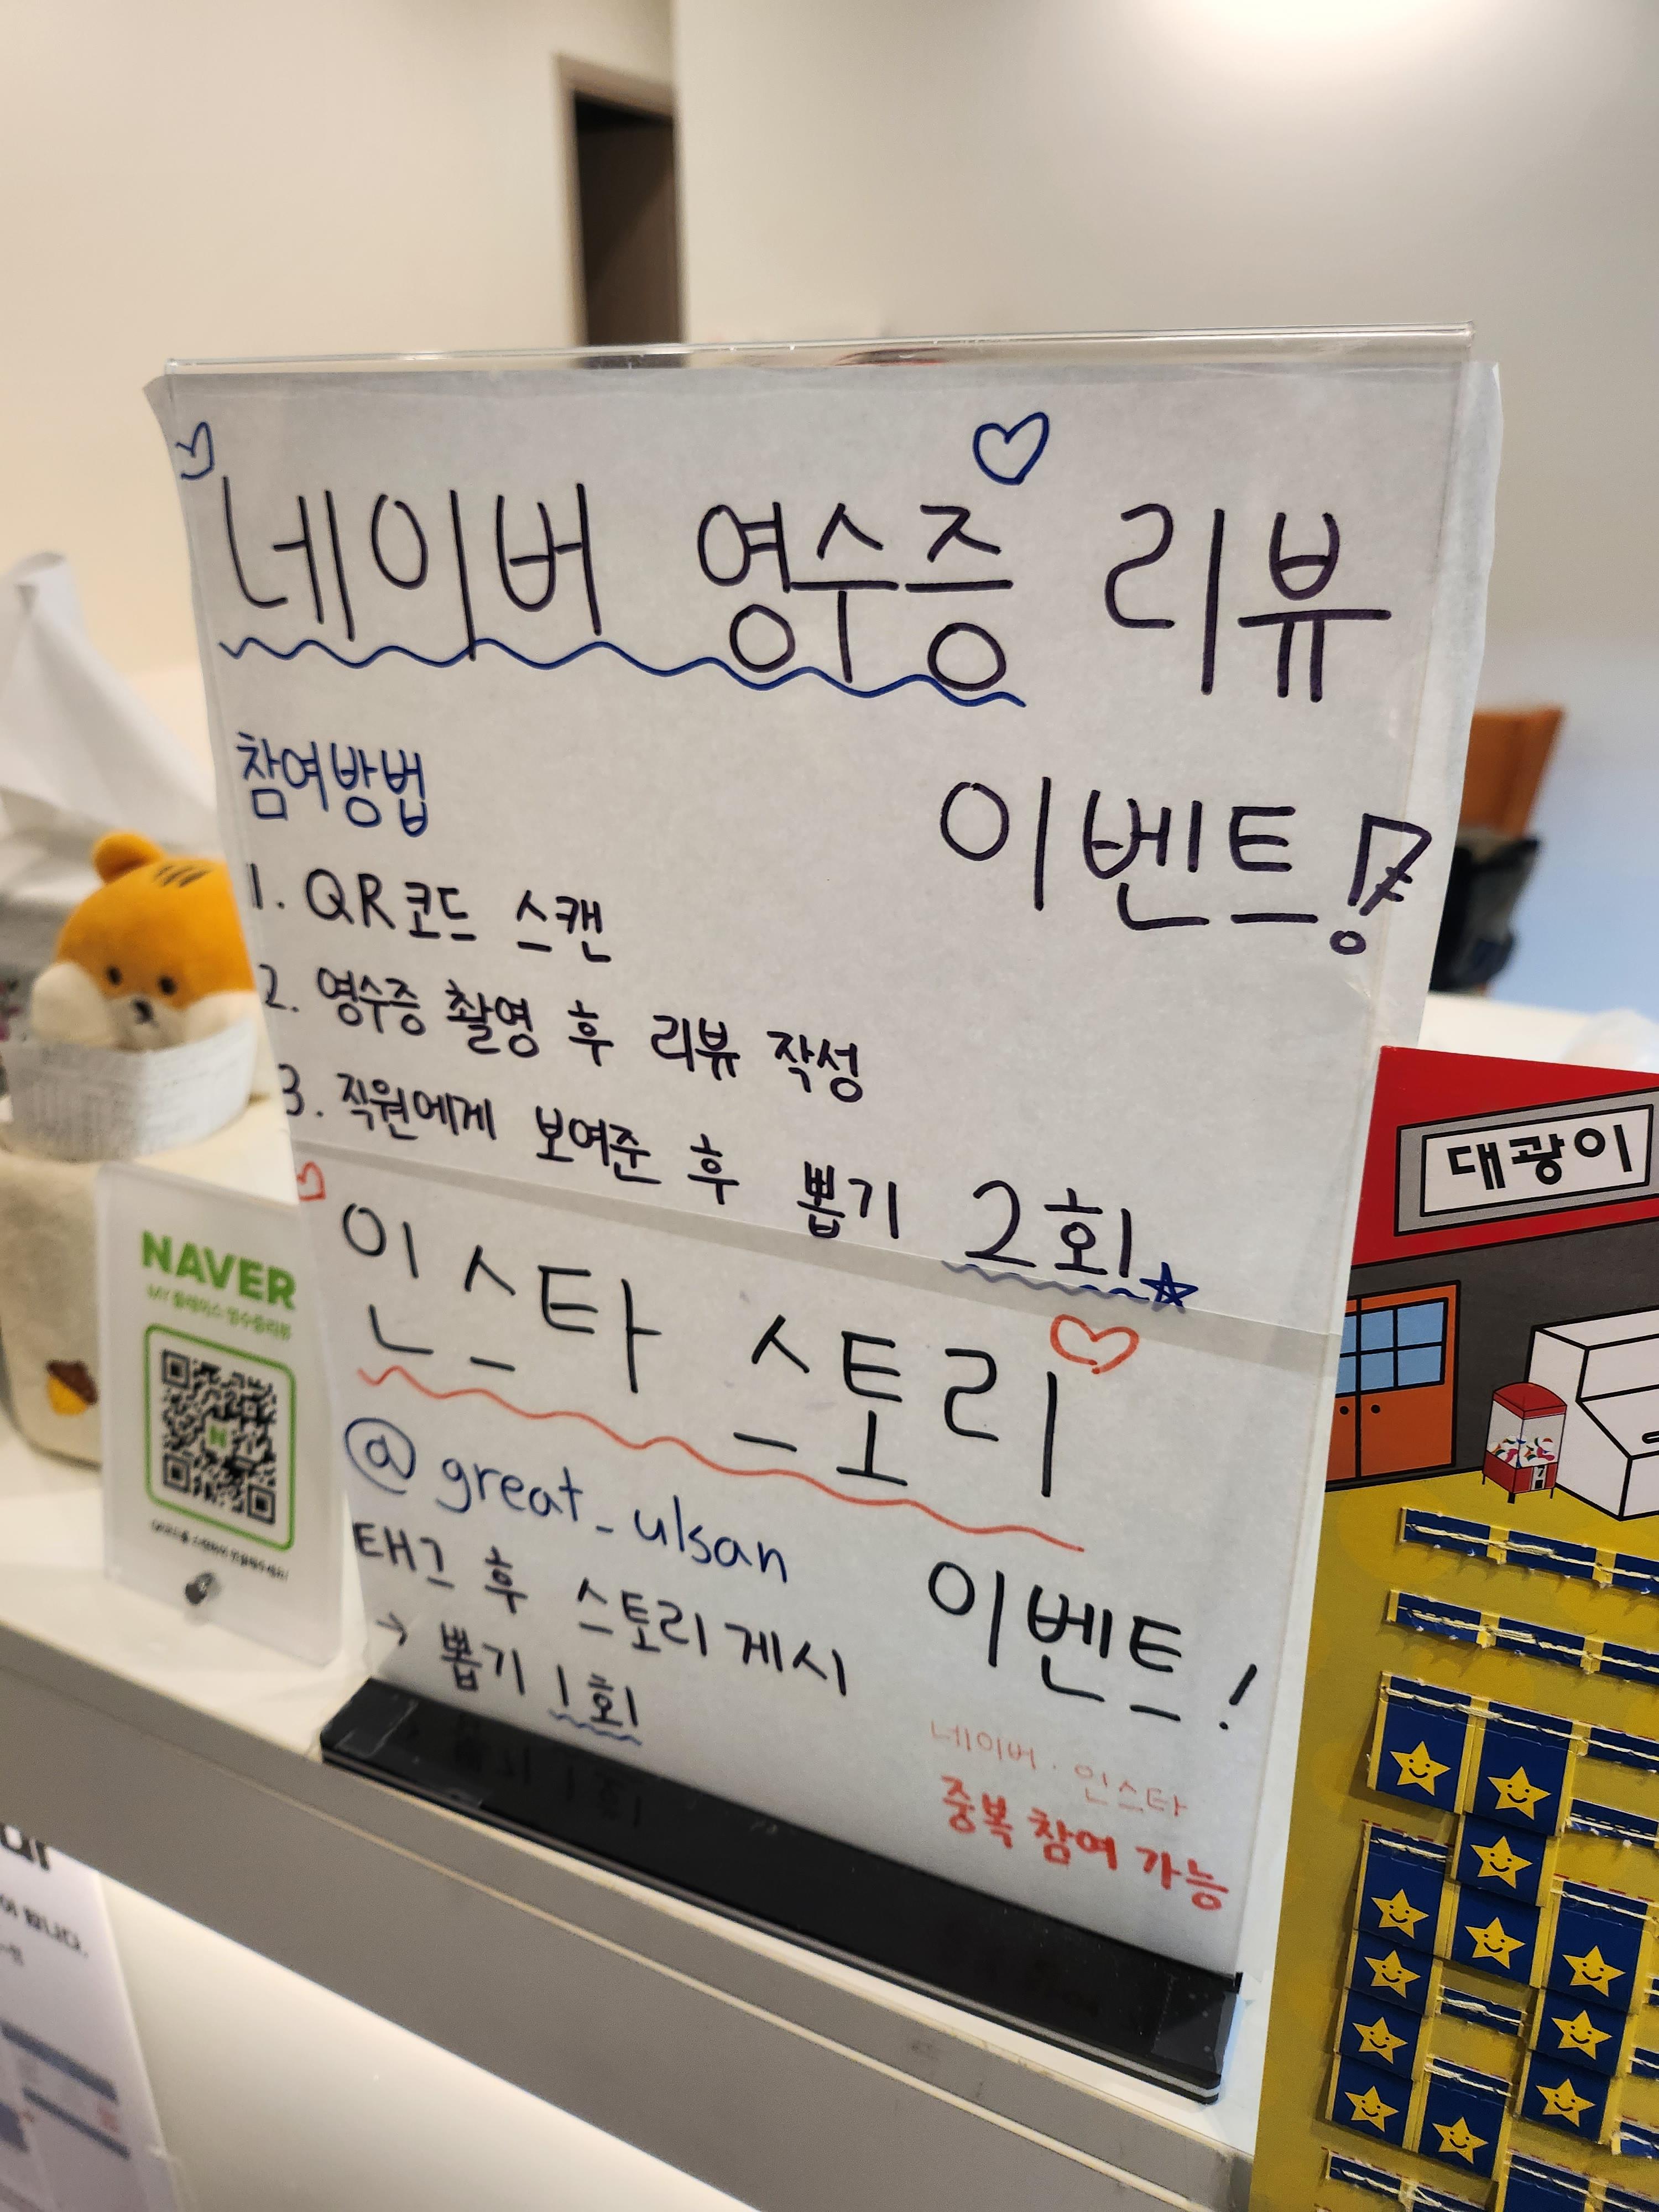 네이버 영수증 리뷰
이벤트!
참여방법
1. QR코드 스캔
2. 영수증 촬영 후 리뷰 작성
3. 직원에게 보여준 후 뽑기 2회
인스타 스토리
이벤트!
@great_ulsan
태그 후 스토리 게시
→ 뽑기 1회
네이버 · 인스타
중복 참여 가능
NAVER
MY 플레이스 영수증리뷰
N
대광이
니다.